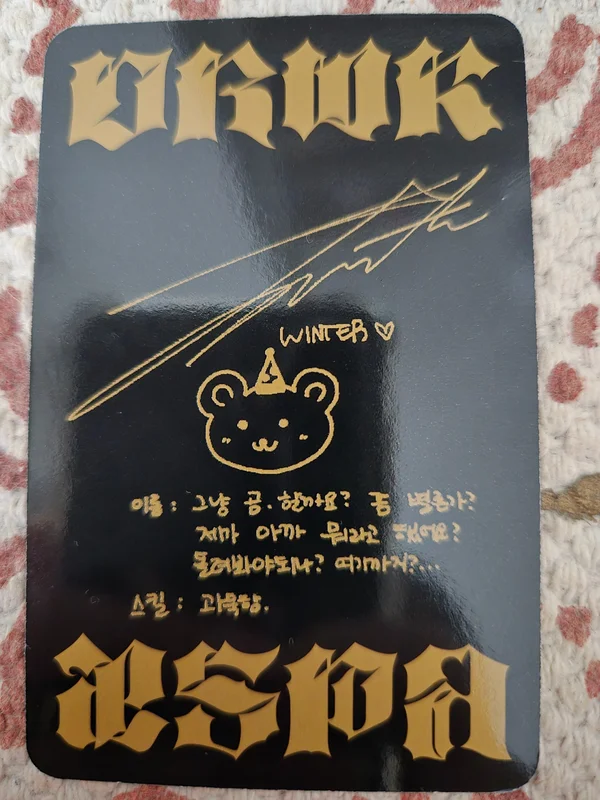 DRWK
WINTER♡
이름 : 그냥 곰. 할까요? 좀 별론가?
제가 아까 뭐라고 했어요?
돌려봐야되나? 여기까지?...
스킬 : 과묵함.
æspa